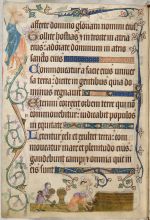 afferte domino gloriam nomini eius
Tollite hostias et introite in atria
eius: adorate dominum in atrio
sancto eius
Commoveatur a facie eius univer
sa terra: dicite in gentibus quia do
minus regnavit
Etenim correxit orbem terre qui
non commovebitur: iudicabit populos
in equitate
Letentur celi et exultet terra: com
moveatur mare et plenitudo eius
gaudebunt campi et omnia que in
eis sunt